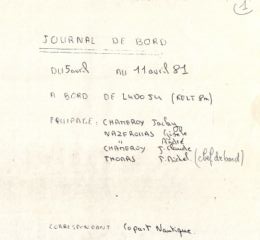 1
JOURNAL DE BORD
DU 5 avril AU 11 avril 81
A BORD DE LUDO 54 (KELT 8m)
EQUIPAGE : CHAMBROY Jacky
NAZEROLLAS Gisèle
" André
CHAMBROY J. Claude
THOMAS J. Michel (chef de bord)
CORRESPONDANT Copart Nautique